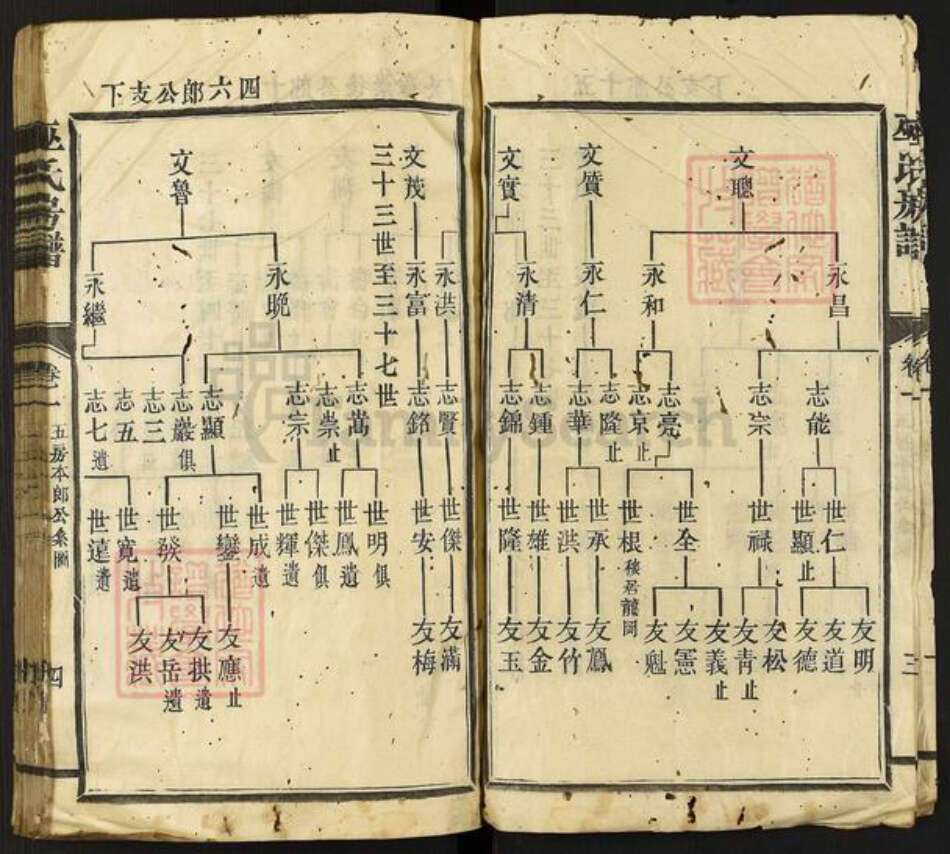 巫氏族譜
卷一
三
文聰
永昌
永和
志能
志宗
志亮
志京止
世仁
世顯止
世祿
世全
世根 移居龍岡
友明
友道
友德
友松
友青止
友義止
友憲
友魁
文質
永仁
志隆止
志華
世承
世洪
友鳳
友竹
文實
永清
志鍾
志錦
世雄
世隆
友金
友玉
永洪
志賢
世傑
友滿
文茂
永富
志銘
世安
友梅
三十三世至三十七世
四六郎公支下
文魯
永晚
永繼
志嵩
志崇止
志宗
志顯
志巖俱
志三
志五
志七遺
世明俱
世鳳遺
世傑俱
世輝遺
世成遺
世鑾
世發
世寬遺
世遠遺
友應止
友拱遺
友岳遺
友洪
巫氏房譜
卷一
五房本郎公系圖
四
FamilySearch